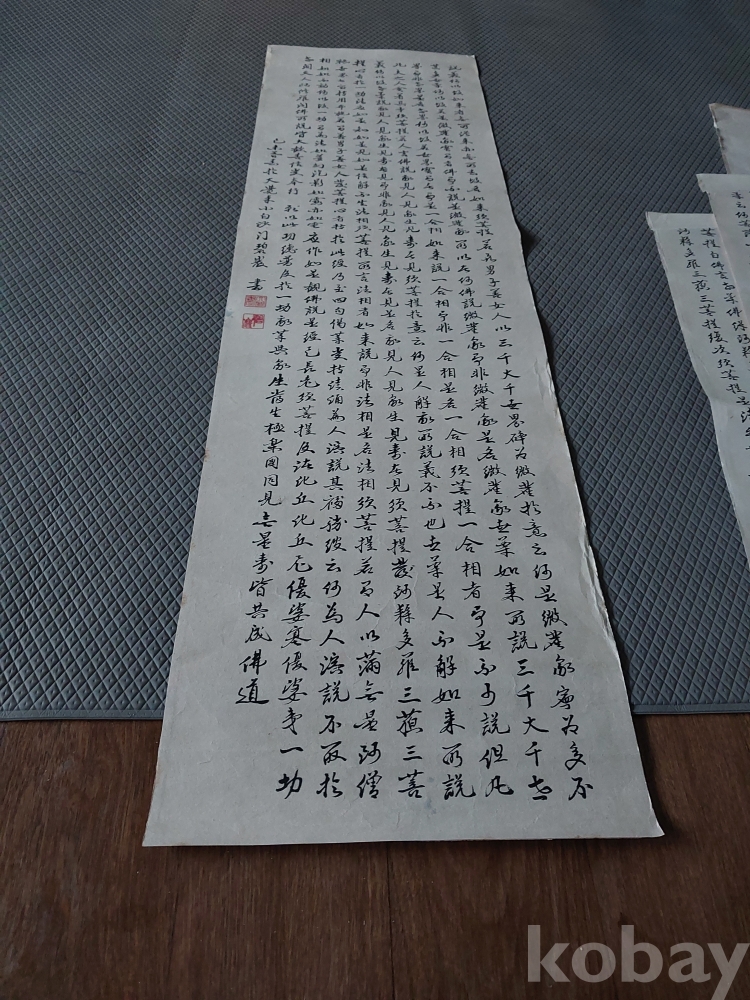 說義何以故如來者無所從來亦無所去故名如來須菩提若善男子善女人以三千大千世界碎為微塵於意云何是微塵眾寧為多不
甚多世尊何以故若是微塵眾實有者佛即不說是微塵眾所以者何佛說微塵眾即非微塵眾是名微塵眾世尊如來所說三千大千世
界即非世界是名世界何以故若世界實有者即是一合相如來說一合相即非一合相是名一合相須菩提一合相者即是不可說但凡
夫之人貪著其事須菩提若人言佛說我見人見眾生見壽者見須菩提於意云何是人解我所說義不不也世尊是人不解如來所說
義何以故世尊說我見人見眾生見壽者見即非我見人見眾生見壽者見是名我見人見眾生見壽者見須菩提發阿耨多羅三藐三菩
提心者於一切法應如是知如是見如是信解不生法相須菩提所言法相者如來說即非法相是名法相須菩提若有人以滿無量阿僧
祇世界七寶持用布施若有善男子善女人發菩提心者持於此經乃至四句偈等受持讀誦為人演說其福勝彼云何為人演說不取於
相如如不動何以故一切有為法如夢幻泡影如露亦如電應作如是觀佛說是經已長老須菩提及諸比丘比丘尼優婆塞優婆夷一切
世間天人阿修羅聞佛所說皆大歡喜信受奉行 願以此功德普及於一切我等與眾生當生極樂國同見無量壽皆共成佛道
己未 於大覺 小白沙門碧巖 書
意云何
菩提白佛言世尊佛得阿耨
阿耨多羅三藐三菩提復次須菩提是法平
kobay